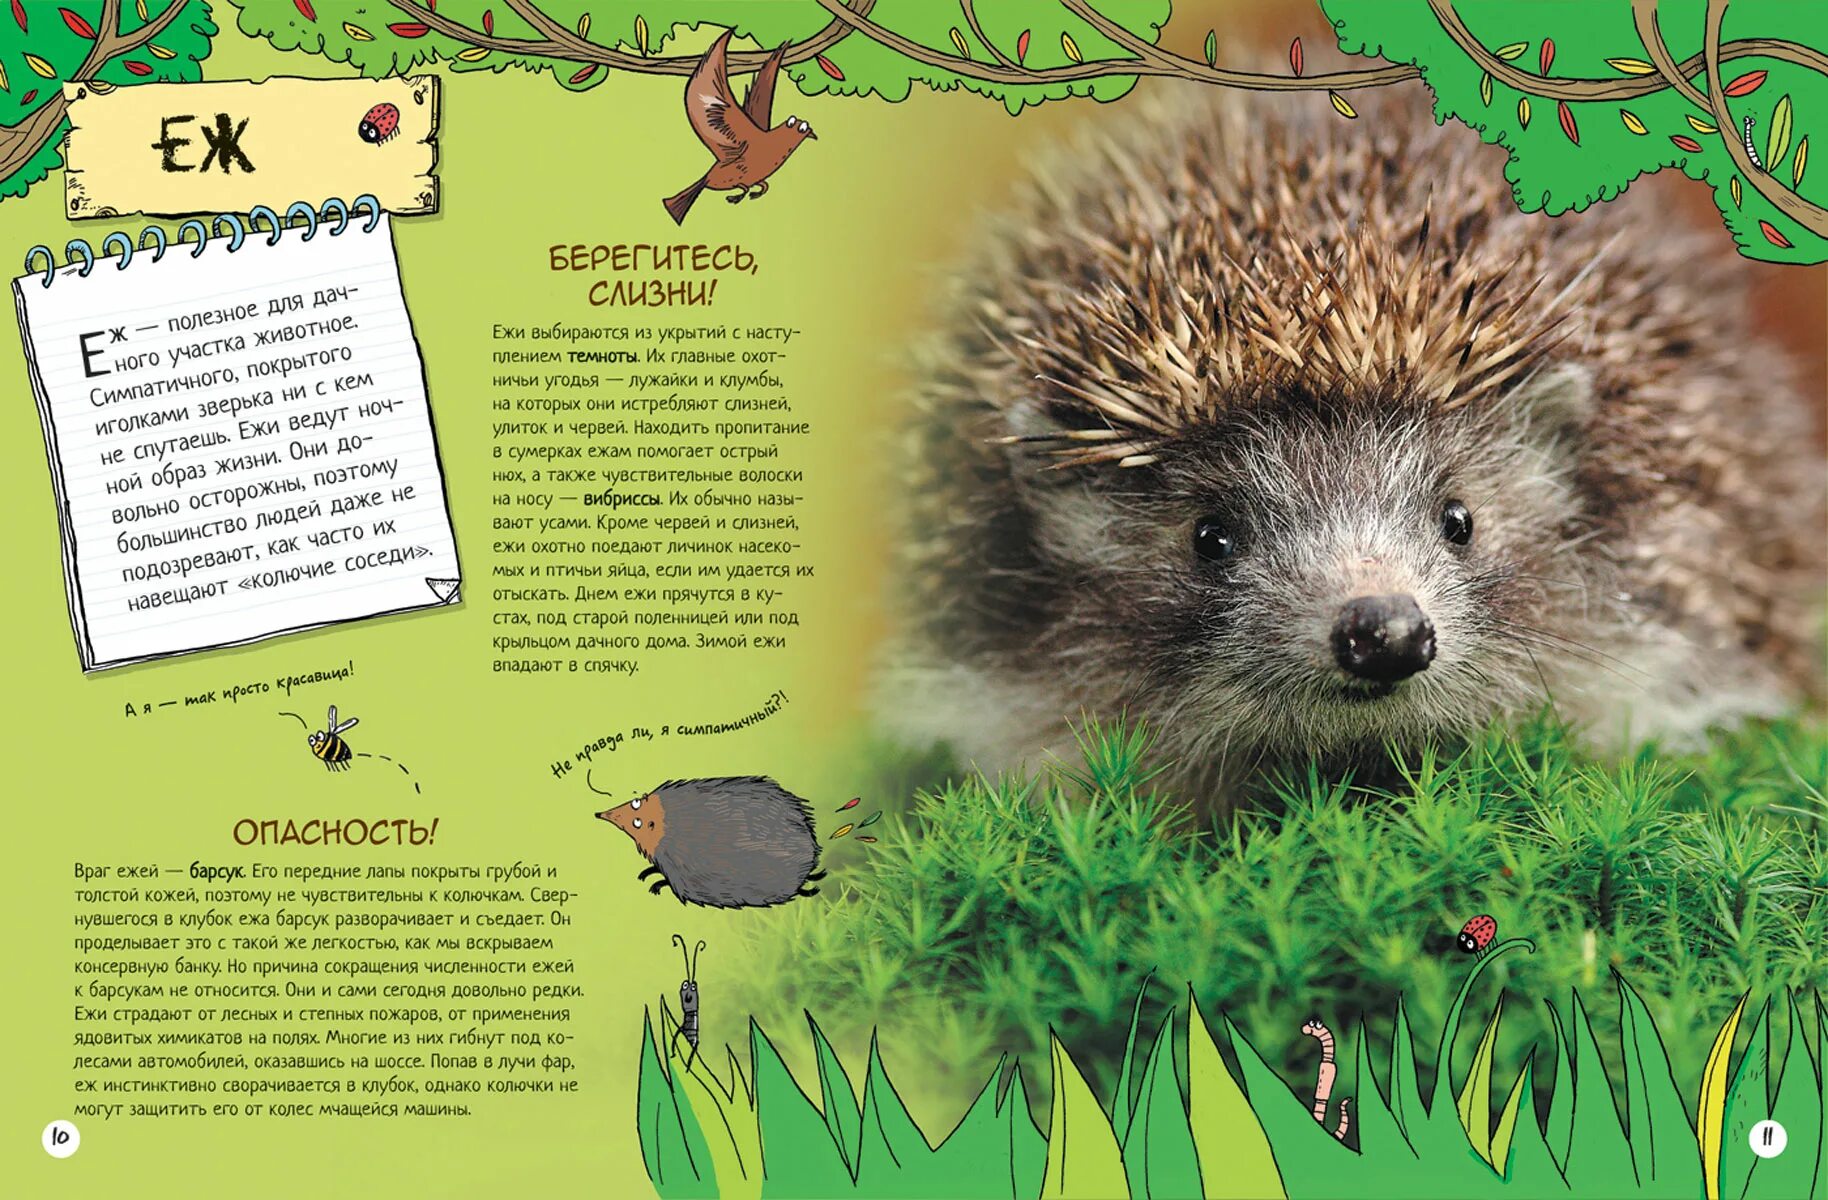 ЕЖ
Еж — полезное для дач-
ного участка животное.
Симпатичного, покрытого
иголками зверька ни с кем
не спутаешь. Ежи ведут ноч-
ной образ жизни. Они до-
вольно осторожны, поэтому
большинство людей даже не
подозревают, как часто их
навещают «колючие соседи».
А я — так просто красавица!
БЕРЕГИТЕСЬ,
СЛИЗНИ!
Ежи выбираются из укрытий с насту-
плением темноты. Их главные охот-
ничьи угодья — лужайки и клумбы,
на которых они истребляют слизней,
улиток и червей. Находить пропитание
в сумерках ежам помогает острый
нюх, а также чувствительные волоски
на носу — вибриссы. Их обычно назы-
вают усами. Кроме червей и слизней,
ежи охотно поедают личинок насеко-
мых и птичьи яйца, если им удается их
отыскать. Днем ежи прячутся в ку-
стах, под старой поленницей или под
крыльцом дачного дома. Зимой ежи
впадают в спячку.
Не правда ли, я симпатичный?!
ОПАСНОСТЬ!
Враг ежей — барсук. Его передние лапы покрыты грубой и
толстой кожей, поэтому не чувствительны к колючкам. Свер-
нувшегося в клубок ежа барсук разворачивает и съедает. Он
проделывает это с такой же легкостью, как мы вскрываем
консервную банку. Но причина сокращения численности ежей
к барсукам не относится. Они и сами сегодня довольно редки.
Ежи страдают от лесных и степных пожаров, от применения
ядовитых химикатов на полях. Многие из них гибнут под ко-
лесами автомобилей, оказавшись на шоссе. Попав в лучи фар,
еж инстинктивно сворачивается в клубок, однако колючки не
могут защитить его от колес мчащейся машины.
10
11